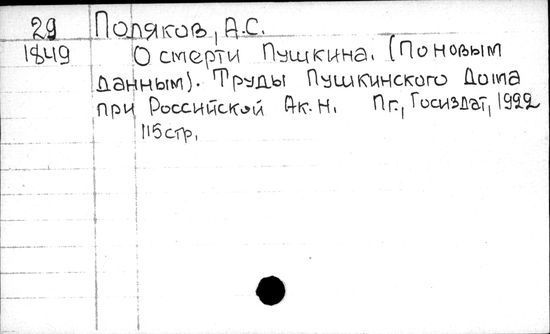 29 Поляков, А.С.
1849 О смерти Пушкина. (По новым
данным). Труды Пушкинского Дома
при Российской Ак.Н. Пг., Госиздат, 1922
115 стр.